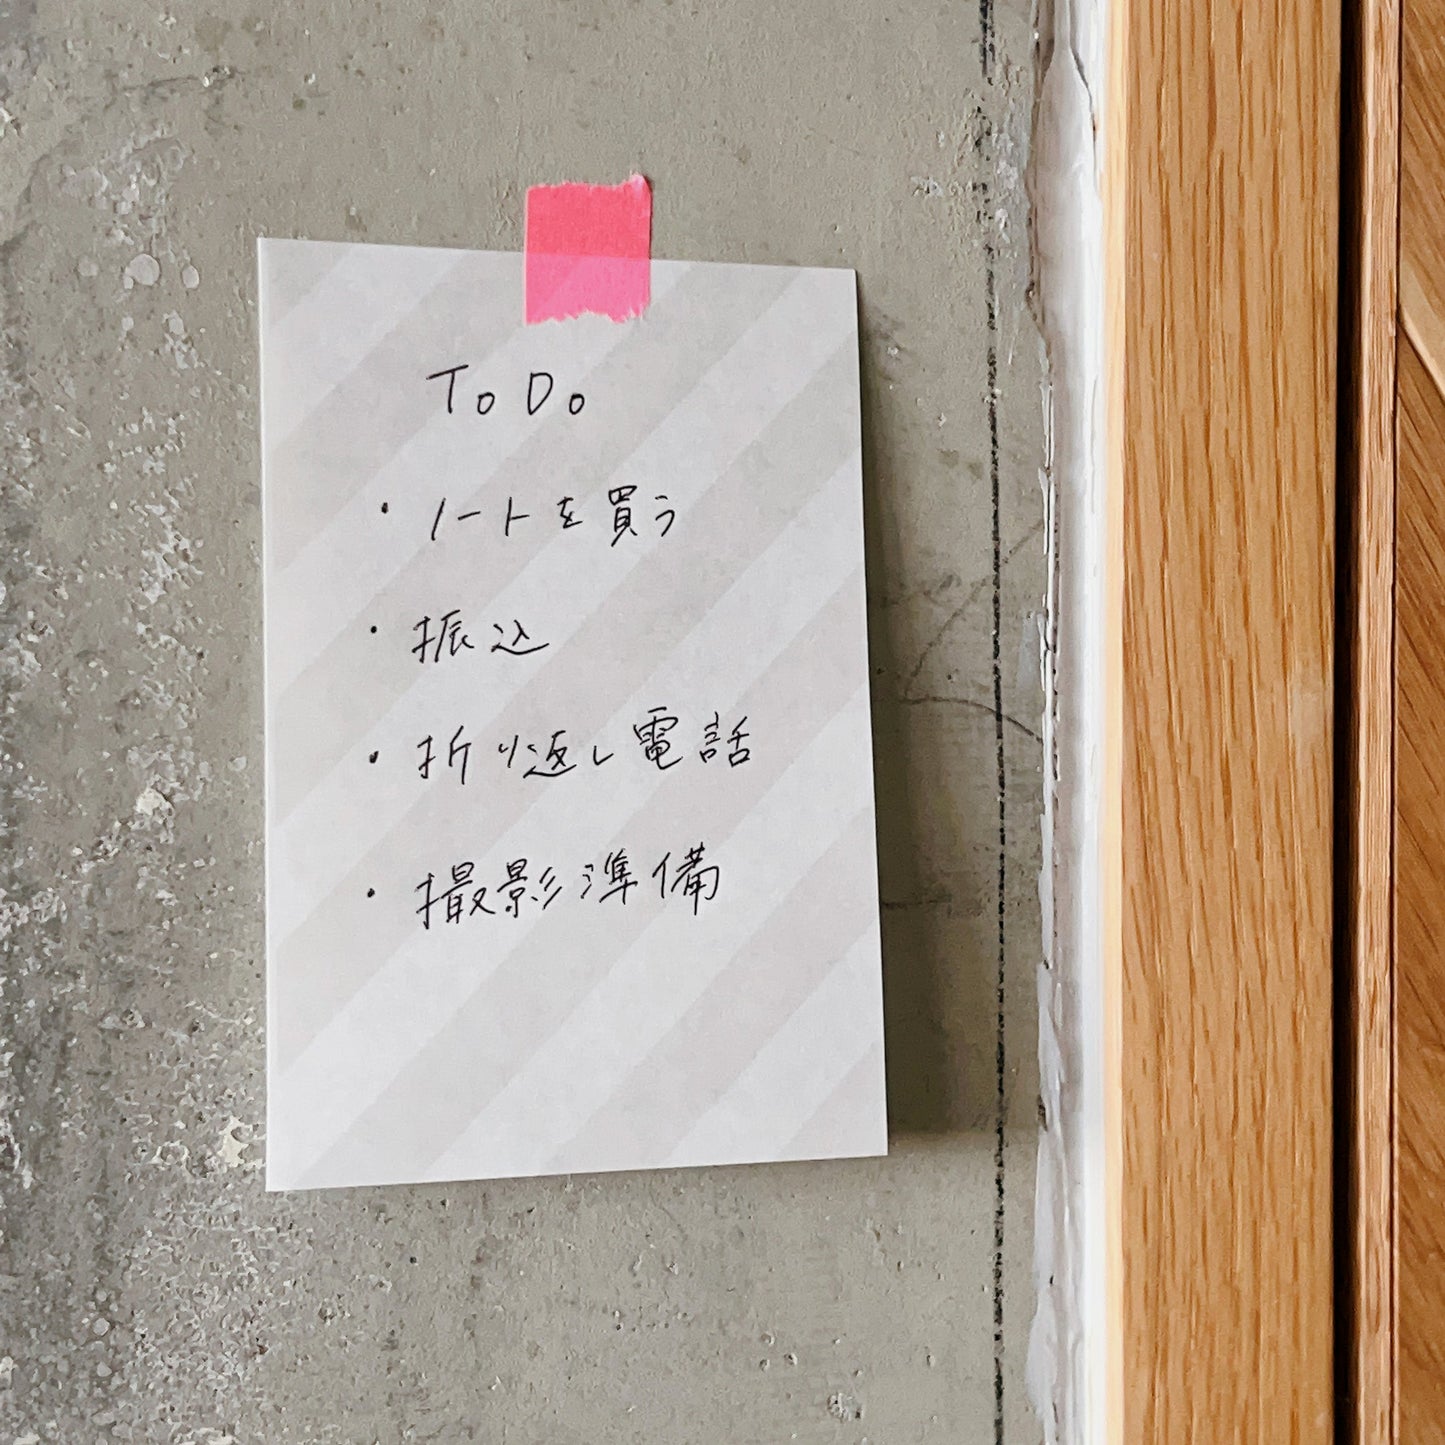 To Do
・ノートを買う
・振込
・折り返し電話
・撮影準備